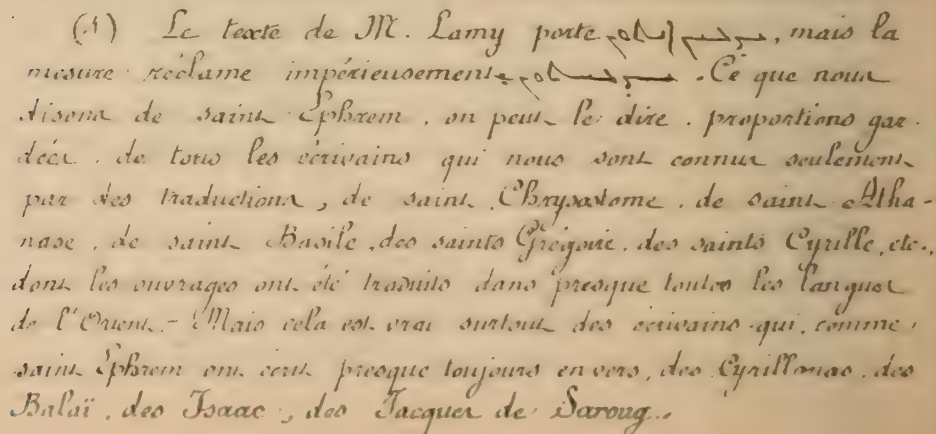 (1) Le texte de M. Lamy porte , mais la
mesure réclame impérieusement . Ce que nous
disons de saint Ephrem, on peut le dire, proportions gar-
dées, de tous les écrivains qui nous sont connus seulement
par des traductions, de saint Chrysostome, de saint Atha-
nase, de saint Basile, des saints Grégoire, des saints Cyrille, etc.,
dont les ouvrages ont été traduits dans presque toutes les langues
de l'Orient. - Mais cela est vrai surtout des écrivains qui, comme
saint Ephrem ont écrit presque toujours en vers, des Cyrillonas, des
Balaï, des Isaac, des Jacques de Saroug..